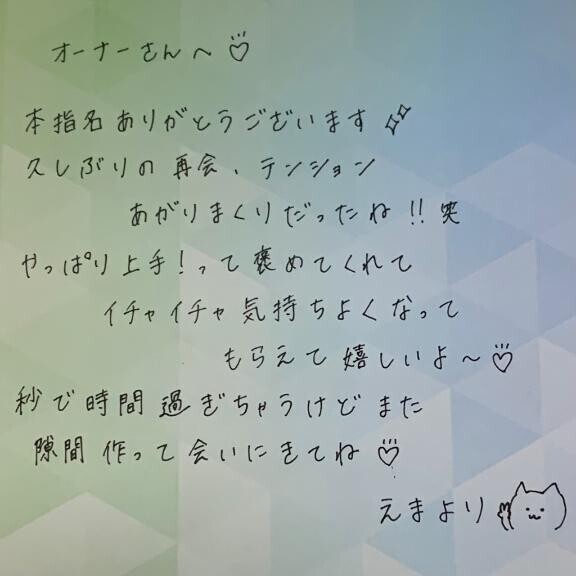 オーナーさんへ♡
本指名ありがとうございます
久しぶりの再会、テンション
あがりまくりだったね!!笑
やっぱり上手!って褒めてくれて
イチャイチャ気持ちよくなって
もらえて嬉しいよ〜♡
秒で時間過ぎちゃうけどまた
隙間作って会いにきてね♡
えまより